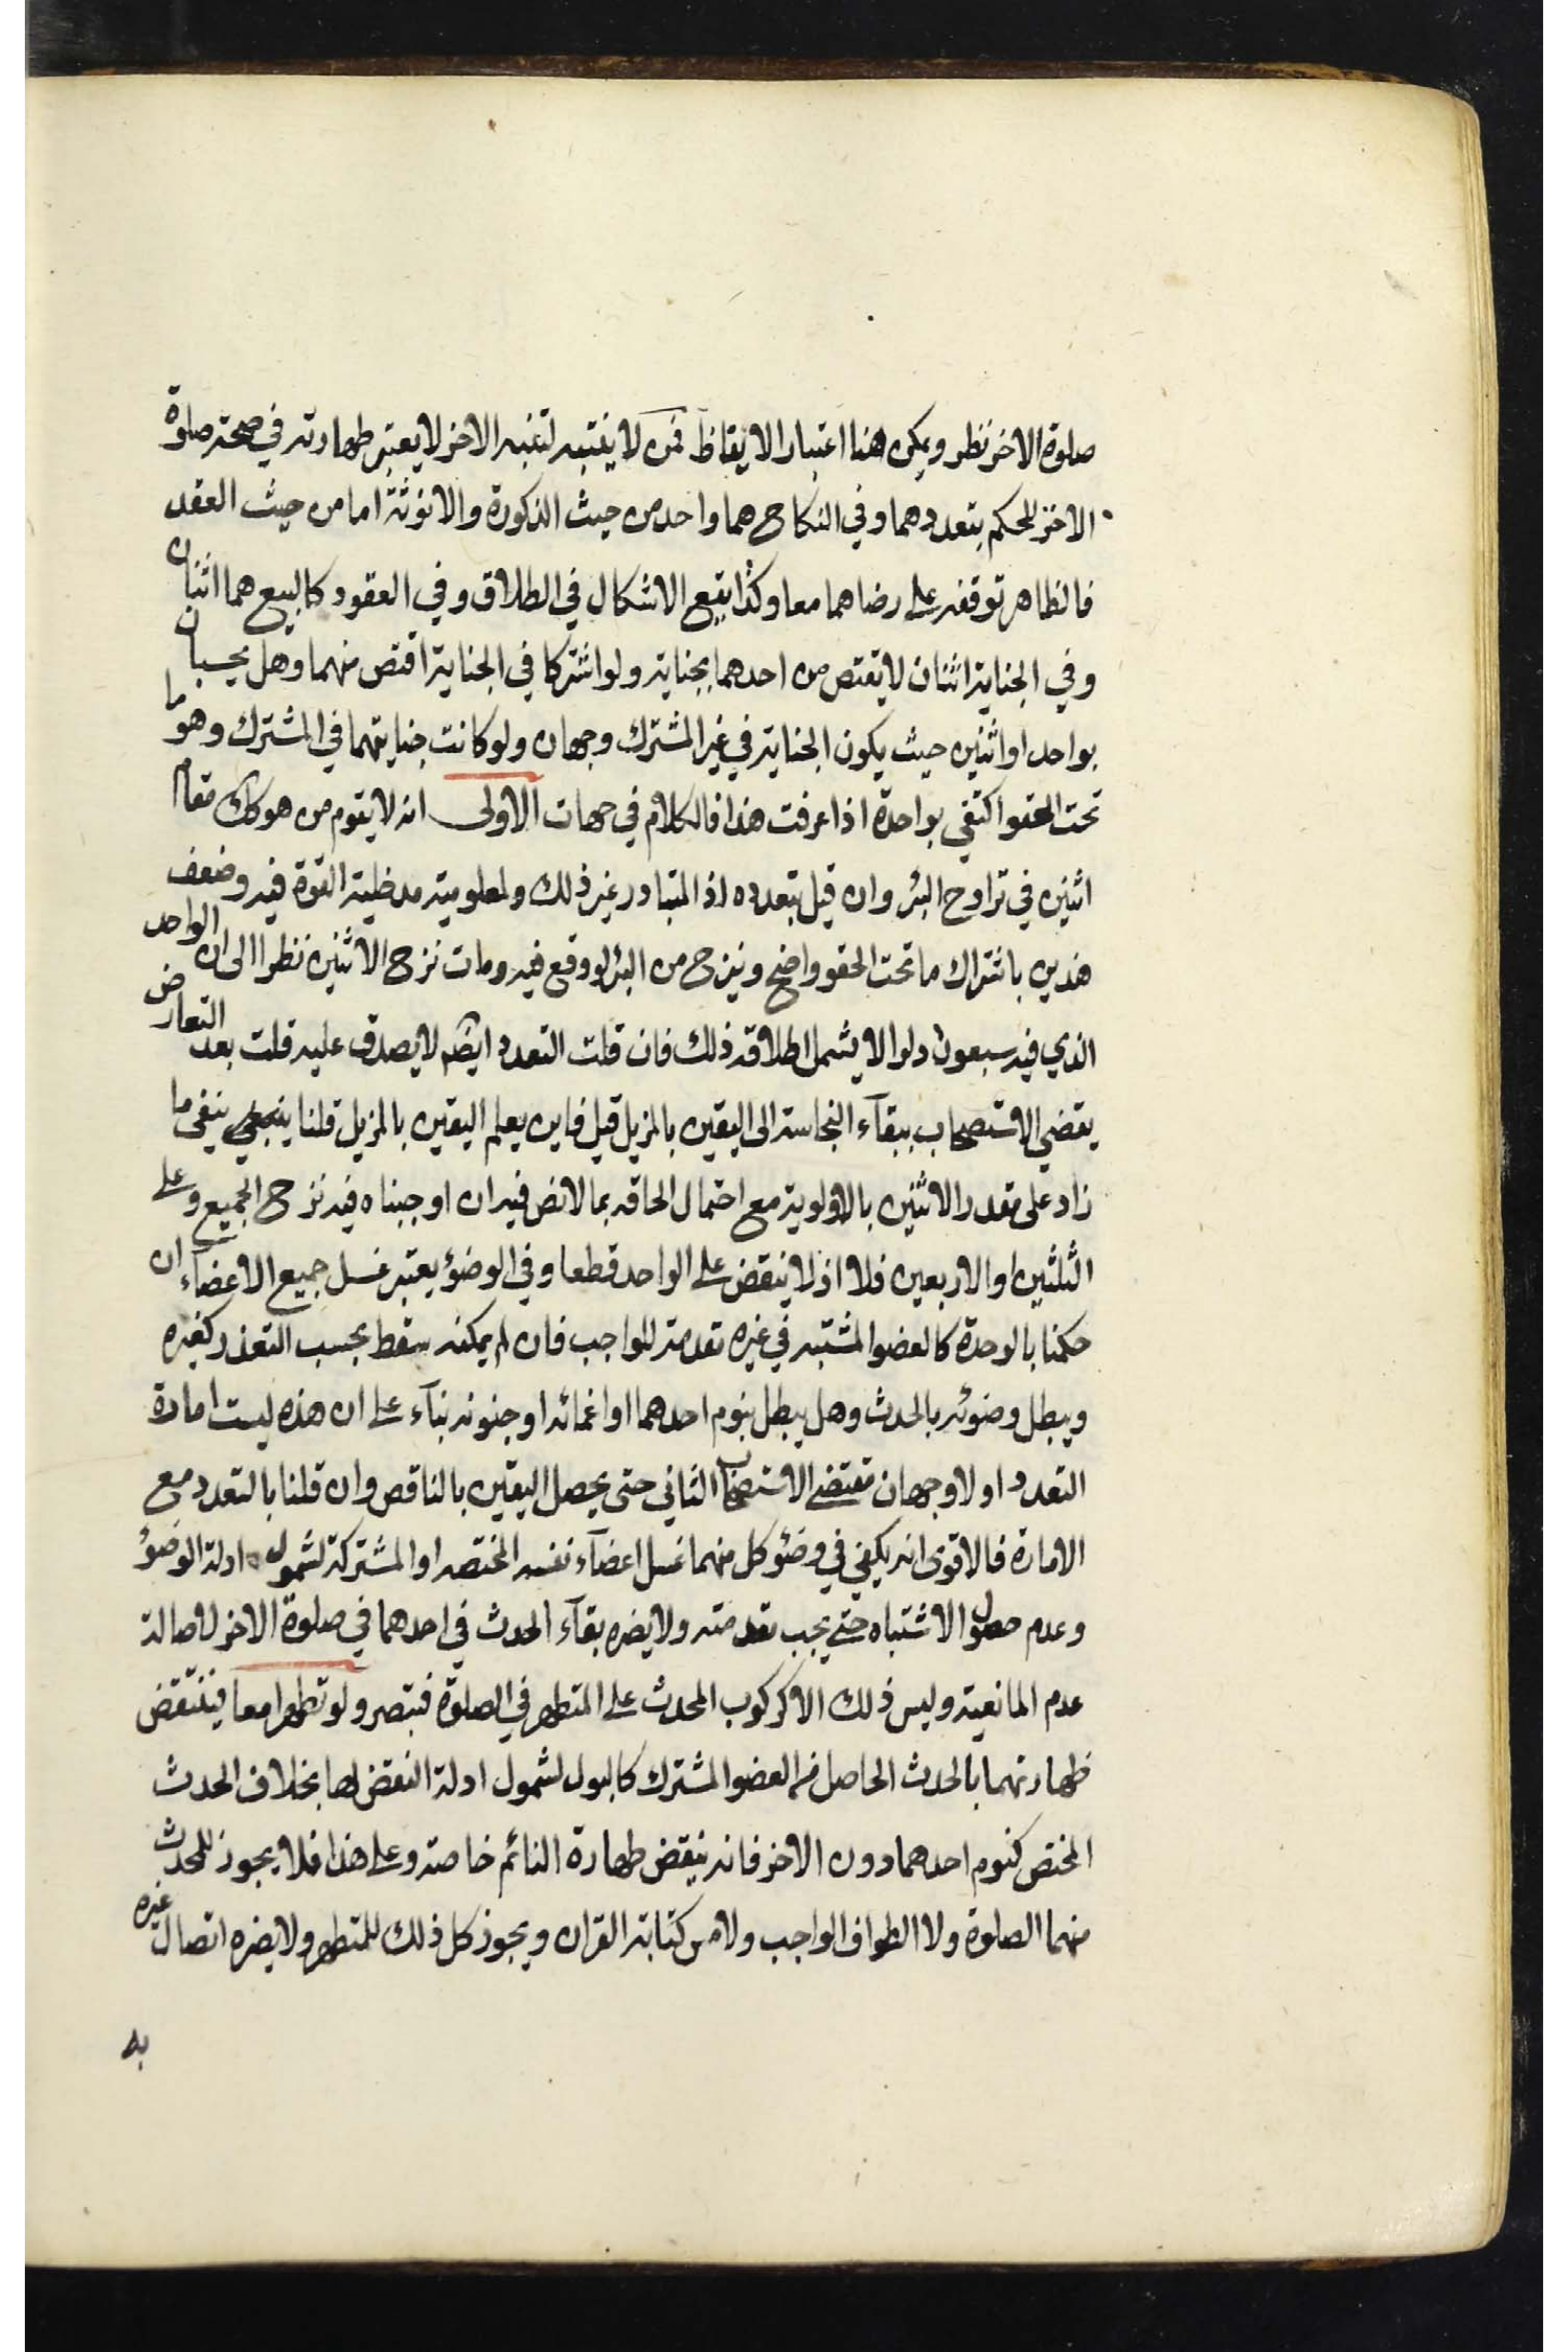 صلوة الاخر نظر ويمكن هنا اعتبار الايقاظ فمن لا ينتبه لتنبه الاخر لا يعتبر طهارته في صحة صلوة
الاخر للحكم بتعددهما وفي النكاح هما واحد من حيث الذكورة والانوثة اما من حيث العقد
فالظاهر توقفه على رضاهما معا وكذا يقع الاشكال في الطلاق وفي العقود كالبيع هما اثنان
وفي الجناية اثنان لا يقتص من احدهما بجناية ولو اشتركا في الجناية اقتص منهما وهل يحسبان
بواحد او اثنين حيث يكون الجناية في غير المشترك وجهان ولو كانت جنايتهما في المشترك وهو ما
تحت الحقو اكتفي بواحدة اذا عرفت هذا فالكلام في جهات الاولى انه لا يقوم من هو كك مقام
اثنين في تراوح البئر وان قيل بتعدده اذ المتبادر غير ذلك ولمعلومية مدخلية القوة فيه وضعف
هذين باشتراك ما تحت الحقو واضح وينزح من البئر لو وقع فيه ومات نزح الاثنين نظرا الى ان الواحد
الذي فيه سبعون دلوا لا يشمل اطلاقه ذلك فان قلت التعدد ايضا لا يصدق عليه قلت بعد التعارض
يقضي الاستصحاب ببقآء النجاسة الى اليقين بالمزيل قيل فاين يعلم اليقين بالمزيل قلنا ينبغي ينفى ما
زاد على مقدر الاثنين بالاولوية مع احتمال الحاقه بما لا نص فيه ان اوجبناه فيه نزح الجميع وعلى
الثلثين او الاربعين فلا اذ لا ينقض على الواحد قطعا وفي الوضوء يعتبر غسل جميع الاعضآء ان
حكمنا بالوحدة كالعضو المشتبه في غيره تقدمة للواجب فان لم يمكنه سقط بحسب التعذر كغيره
ويبطل وضوئه بالحدث وهل يبطل بنوم احدهما او اغمائه او جنونه بنآء على ان هذه ليست امارة
التعدد او لا وجهان مقتضى الاستصحاب الثاني حتى يحصل اليقين بالناقض وان قلنا بالتعدد مع
الامارة فالاقوى انه يكفي في وضوء كل منهما غسل اعضآء نفسه المختصه او المشتركة لشمول ادلة الوضوء
وعدم حصول الاشتباه حتى يجب تقدمته ولا يضره بقآء الحدث في احدهما في صلوة الاخر لاصالة
عدم المانعية وليس ذلك الا كركوب المحدث على المتطهر في الصلوة فتبصر ولو تطهرا معا فينتقض
طهارتهما بالحدث الحاصل من العضو المشترك كالبول لشمول ادلة النقض لها بخلاف الحدث
المختص كنوم احدهما دون الاخر فانه ينقض طهارة النائم خاصة وعلى هذا فلا يجوز للمحدث
منهما الصلوة ولا الطواف الواجب ولا مس كتابة القران ويجوز كل ذلك للمتطهر ولا يضره اتصال غيره
به